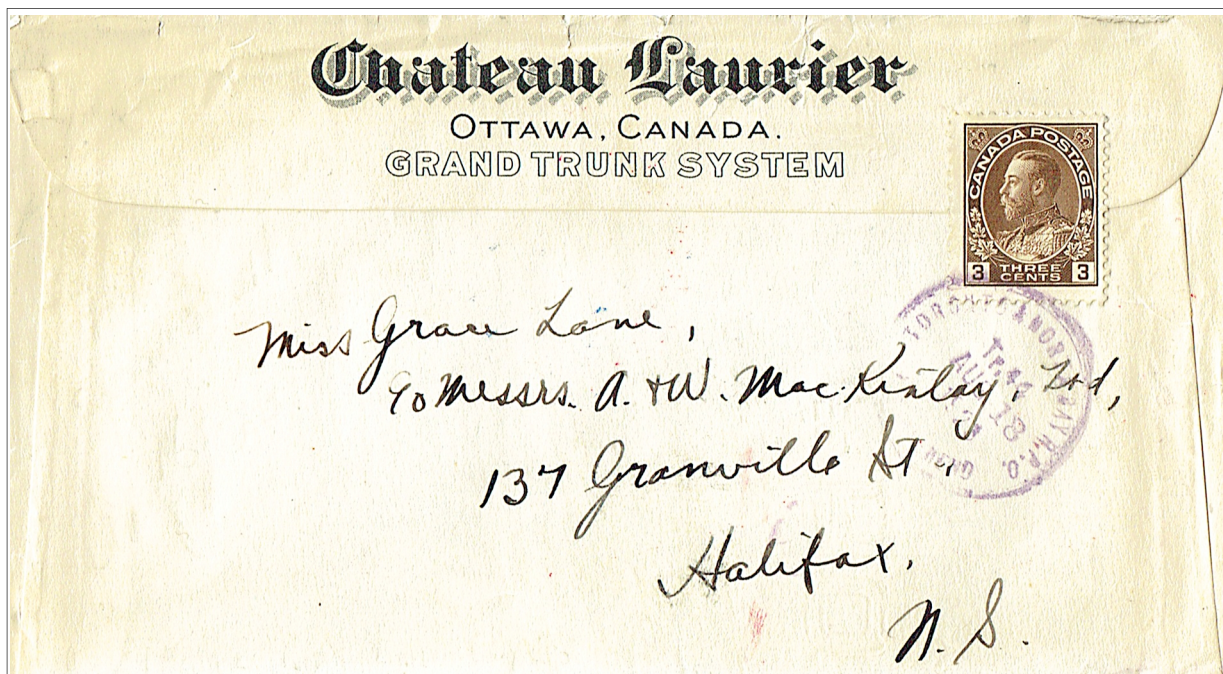 Chateau Laurier
OTTAWA, CANADA.
GRAND TRUNK SYSTEM
CANADA POSTAGE
3 THREE CENTS 3
Miss Grace Lane,
c/o Messrs. A. & W. MacKinlay, Ltd,
137 Granville St.,
Halifax,
N. S.
R.P.O.
18